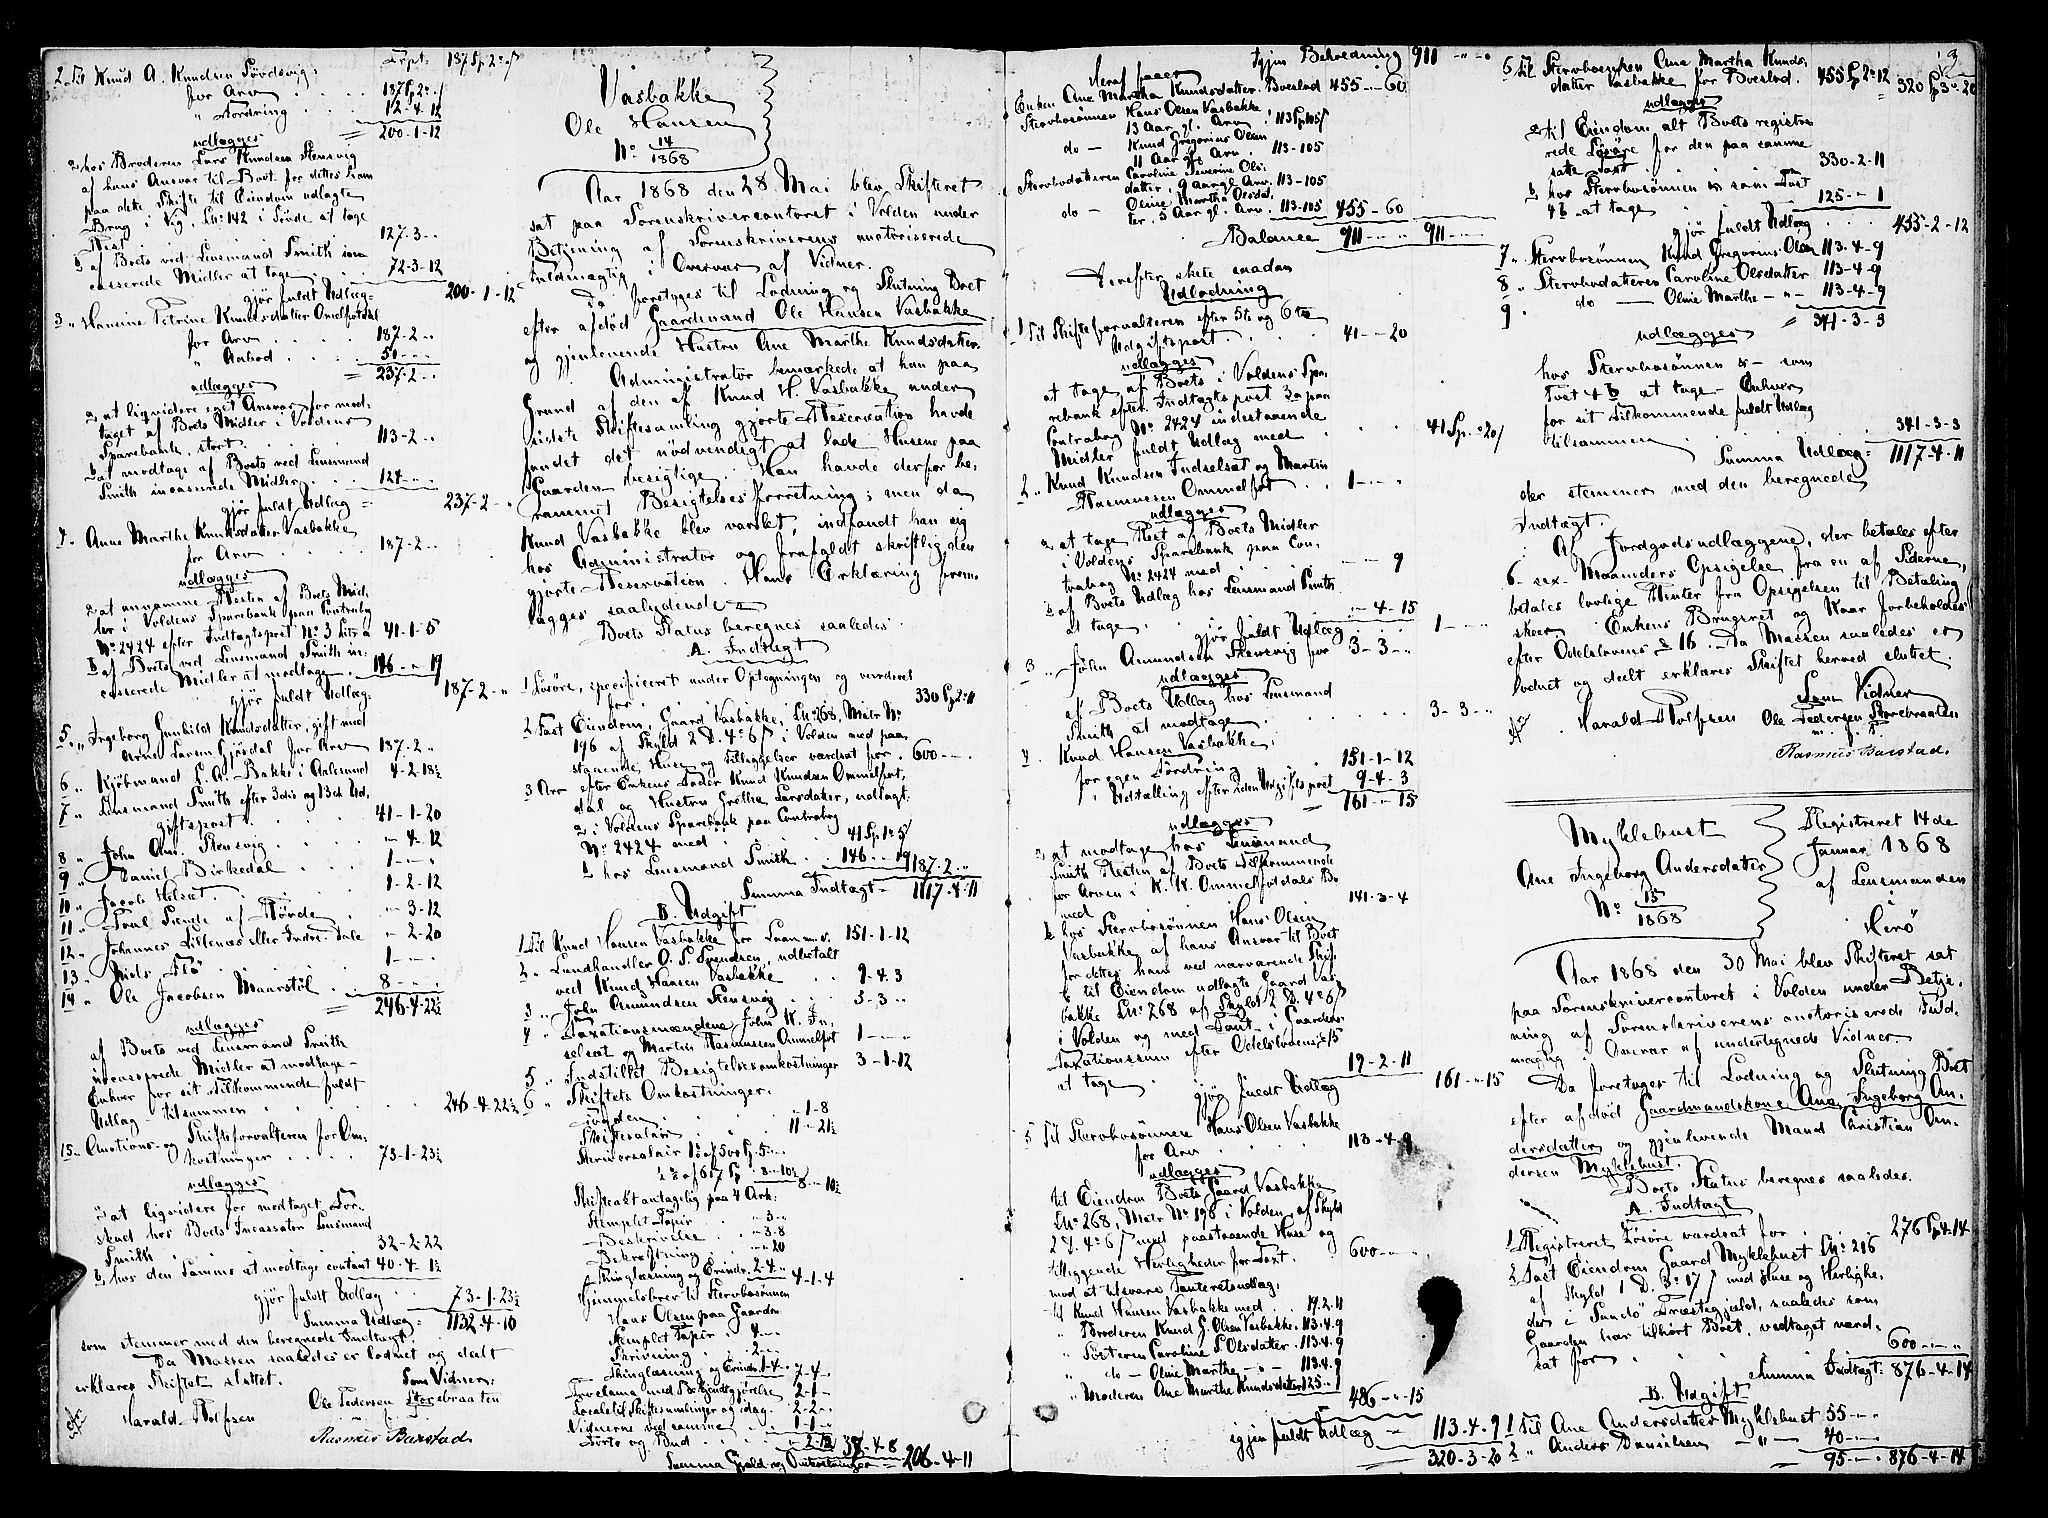 Trpt. 187 Sp. 2 - "
2. Til Knud A. Knudsen Sövdsvig:
for Arv . . . 187 Sp 2 "
" Fordring . . . 12-4-12
= 200-1-12
udlægges
a, hos Broderen Lars Knudsen Stensvig
af hans Ansvar til Boet for dettes ham
paa dette Skifte til Eiendom udlagte
Brug i Vig, L.No. 142 i Sövde at tage
Rest 127-3 "
b af Boets ved Lensmand Smith in-
casserede Midler at tage . . 72-3-12
gjör fuldt Udlæg = 200-1-12
3 " Hansine Petrine Knudsdatter Omelfotdal
for Arv . . . 187-2 "
" Anbod . . . 50 " "
= 237-2 "
udlægges
a, at liqvidere eget Ansvar for mod-
taget af Boets Midler i Voldens
Sparebank, stort . . . 113-2 "
b at modtage af Boets ved Lensmand
Smith incasserede Midler . . 124 " "
gjör fuldt Udlæg = 237-2 "
4 " Anne Marthe Knudsdatter Vasbakke
for Arv . . . 187-2 "
udlægges
a at annamme Resten af Boets Mid-
ler i Voldens Sparebank paa Contrabog
No. 2424 efter Indtægtspost No. 3 Litr a 41-1-5
b af Boets ved Lensmand Smith in-
casserede Midler at modtage . 146 - " 19
gjör fuldt Udlæg = 187-2 "
5 " Ingeborg Gunhild Knudsdatter, gift med
Arne Larsen Gjösdal for Arv 187-2 "
6 " Kjöbmand L. A. Bakke i Aalesund 4-2-18½
7 " Lensmand Smith efter 3die og 13de Ud-
giftspost . . . 41-1-20
8 " John Am. Stensvig . . . " 4-12
9 " Daniel Birkedal . . . 1 " "
10 " Jacob Helset . . . 1-2-12
11 " Poul Sunde af Rövde . " 3-12
12 " Johannes Lillenæs eller Indre-Dale " 2-20
13 " Niels Flö . . . 1 " "
14 " Ole Jacobsen Maurstöl . . 8 " "
= 246-4-22½
udlægges
af Boets ved Lensmand Smith
incasserede Midler at modtage -
Enhver for sit Tilkommende fuldt
Udlæg - tilsammen . . . 246-4-22½
15 " Auctions- og Skifteforvalteren for Om-
kostninger . . . 73-1-23½
udlægges
a at liqvidere for modtaget For-
skud hos Boets Incassator Lensmand
Smith . . . 32-2-22
b hos den Samme at modtage contant 40-4-1½
gjör fuldt Udlæg . . 73-1-23½
Summa Udlæg = 1132-4-10
som stemmer med den beregnede Indtægt.
Da Massen saaledes er lodnet og deelt
erklæres Skiftet sluttet.
Som Vidner:
Harald Rolfsen Ole Pedersen Storebraaten
Rasmus Barstad
Vasbakke
Ole Hansen
No. 14/1868
Aar 1868 den 28 Mai blev Skifteret
sat paa Sorenskrivercontoret i Volden under
Betjening af Sorenskriverens autoriserede
Fuldmægtig i Overvær af Vidner.
Da foretoges til Lodning og Slutning Boet
efter afdöd Gaardmand Ole Hansen Vasbakke
og gjenlevende Hustru Ane Marthe Knudsdatter.
Administrator bemærkede at han paa
Grund af den af Knud H. Vasbakke under
sidste Skiftesamling gjorte Reservation havde
fundet det nödvendigt at lade Husene paa
Gaarden besigtige. Han havde derfor be-
rammet Besigtelsesforretning; men da
Knud Vasbakke blev varslet, indfandt han sig
hos Administrator og frafaldt skriftlig den
gjorte Reservation. Hans Erklæring frem-
lægges saalydende
Boets Status beregnes saaledes.
A. Indtægt
1 Lösöre, specificeret under Optegningen og vurderet
for . . . 330 Sp 2-11
2 Fast Eiendom, Gaard Vasbakke, L.No. 268, Matr No.
196 af Skyld 2 D. 4 o. 6 ß i Volden med paa-
staaende Huse og Tilliggelser værdsat for . 600 - "
3 Arv efter Enkens Fader Knud Knudsen Ommelfot-
dal og Hustru Grethe Larsdatter, udlagt:
a i Voldens Sparebank paa Contrabog
No. 2424 med . . . 41 Sp 1-5 ß
b hos Lensmand Smith . . 146 " 19 187-2 "
Summa Indtægt = 1117-4-11
B. Udgift
1 Til Knud Hansen Vasbakke for Laan m.v. 151-1-12
2 " Landhandler O. P. Svendsen, udbetalt
ved Knud Hansen Vasbakke . . 9-4-3
3 " John Amundsen Stensvig . . . 3-3 "
4 " Taxationsmændene John K. In-
selset og Martin Rasmussen Ommelfot 1 " "
5 " Indstillet Besigtelsesomkostninger 3-1-12
6 " Skiftets Omkostninger:
Fonden . . . " 1-8
Skiftesalair . . . 11-21½
Skriversalair 1% af 500 Sp. 5 "
½% af 617 Sp . 3 " 10½ 8 " 10½
Skifteakt antagelig paa 4 Ark:
Stemplet Papir . . " 3 "
Beskrivelse . . " 3-8
Bekræftning . . " " 20
Thinglæsning og Erindr. 2-4 " 4-1-4
Hjemmelsbrev til Stervbosönnen
Hans Olsen paa Gaarden
Stemplet Papir . . 4 "
Skrivning . . 2 "
Thinglæsning og Erindr. 1-4 " 7-4 "
Proclama med Bekjendtgjörelse 2-1 "
Locale til Skiftesamlinger og idag 2-2 "
Vidnerne ved samme . . 1-1 "
Porto og Bud . . . " 2-12 38-4-8
Summa Gjæld og Omkostninger = 206-4-11
igjen Beholdning 911 " "
Heraf faaer
Enken Ane Martha Knudsdatter Boeslod 455 - " 60
Stervbosönnen Hans Olsen Vasbakke
13 Aar gl. Arv . 113 Sp 105 ß
do - Knud Gregorius Olsen
11 Aar gl. Arv . 113-105
Stervbodatteren Caroline Severine Ols-
datter, 9 Aar gl. Arv . 113-105
do - Oline Martha Olsdat-
ter. 5 Aar gl. Arv . 113-105 455 - 60
Balance 911 " " 911 " "
Derefter skete saadan
Udlodning
1 Til Skifteforvalteren efter 5te og 6te
Udgiftspost . . . 41 - " 20
udlægges
at tage af Boets i Voldens Spa-
rebank efter Indtægts post 3 a paa
Contrabog No. 2424 indestaaende
Midler fuldt Udlæg med . . . 41 Sp. " 20 ß
2 " Knud Knudsen Indselset og Martin
Rasmussen Ommelfot . . 1 " "
udlægges
a at tage Rest af Boets Midler
i Voldens Sparebank paa Con-
trabog No. 2424 med . . " " 9
b af Boets Udlæg hos Lensmand Smith
at tage . . . " 4-15
gjör fuldt Udlæg 1 " "
3 " John Amundsen Stensvig for 3-3 "
udlægges
af Boets Udlæg hos Lensmand
Smith at modtage . . . 3-3 "
4 " Knud Hansen Vasbakke:
for egen Fordring . . 151-1-12
" Udtælling efter 2den Udgiftspost 9-4-3
= 161 - " 15
udlægges
a at modtage hos Lensmand
Smith Resten af Boets Tilkommende
for Arven i K. K. Ommelfotdals Bo
med 141-3-4
b hos Stervbosönnen Hans Olsen
Vasbakke af hans Ansvar til Boet
for dettes ham ved nærværende Skif-
te til Eiendom udlagte Gaard Vas-
bakke L.No. 268 af Skyld 2 D. 4 o. 6 ß
i Volden og med Pant - i Gaardens
Taxationssum efter Odelslovens § 15
at tage . . . 19-2-11
gjör fuldt Udlæg 161 - " 15
5 Til Stervbosönnen Hans Olsen Vasbakke
for Arv . . . 113-4-9
udlægges
til Eiendom Boets Gaard Vasbakke
L.No. 268, Matr No. 196 i Volden, af Skyld
2 D. 4 o. 6 ß med paastaaende Huse og
tilliggende Herligheder for Taxt. 600 " "
mod at tilsvare Panteretsudlæg:
til Knud Hansen Vasbakke med . . 19.2.11
" Broderen Knud G. Olsen Vasbakke. 113.4.9
" Sösteren Caroline S. Olsdatter. 113.4.9
" do - Oline Marthe - " - 113.4.9
" Moderen Ane Marthe Knudsdatter 125 - " 1
486 - " 15
igjen fuldt Udlæg = 113.4.9
320-3-20
3
320 Sp 3-20
6 Til Stervboenken Ane Martha Knuds-
datter Vasbakke for Boeslod. 455 Sp 2-12
udlægges
a til Eiendom alt Boets registre-
rede Lösöre for den paa samme
satte Taxt . . 330-2-11
b hos Stervbosönnen " som Post
4 b at tage . . . 125 - " 1
gjör fuldt Udlæg . . . 455-2-12
7 " Stervbosönnen Knud Gregorius Olsen 113-4-9
8 " Stervbodatteren Caroline Olsdatter 113-4-9
9 " do - Oline Marthe - " - 113-4-9
= 341-3-3
udlægges
hos Stervbosönnen " - som
Post 4 b at tage - Enhver
for sit Tilkommende fuldt Udlæg
tilsammen . . . 341-3-3
Summa Udlæg = 1117-4-11
der stemmer med den beregnede
Indtægt.
Af Jordgodsudlæggene, der betales efter
6 - sex - Maaneders Opsigelse fra en af Siderne,
betales lovlige Renter fra Opsigelsen til Betaling
skeer. Enkens Brugsret og Kaar forbeholdes
efter Odelslovens § 16. - Da Massen saaledes er
lodnet og deelt erklæres Skiftet herved sluttet.
Som Vidner
Harald Rolfsen Ole Pedersen Storebraaten
m. f. P.
Rasmus Barstad.
Myklebust
Ane Ingeborg Andersdatter
No. 15/1868
Registreret 14 de
Januar 1868
af Lensmanden
i
Herö
Aar 1868 den 30 Mai blev Skifteret sat
paa Sorenskrivercontoret i Volden under Betje-
ning af Sorenskriverens autoriserede Fuld-
mægtig i Overvær af underlegnede Vidner.
Da foretoges til Lodning og Slutning Boet
efter afdöd Gaardmandskone Ane Ingeborg An-
dersdatter og gjenlevende Mand Christian An-
dersen Myklebust.
Boets Status beregnes saaledes.
A. Indtægt
1 Registreret Lösöre værdsat for . . 276 Sp 4-14
2 Fast Eiendom Gaard Myklebust L.No. 216
af Skyld 1 D. 3 o. 17 ß med Huse og Herlighe-
der i Sandö Præstegjæld, saaledes som
Gaarden har tilhört Boet, vedtaget værd-
sat for . . . 600 " "
Summa Indtægt: 876-4-14
B. Udgift
1 Til Ane Andersdatter Myklebust 55 " "
2 " Anders Danielsen - " - 40 " "
= 95 " " 876-4-14